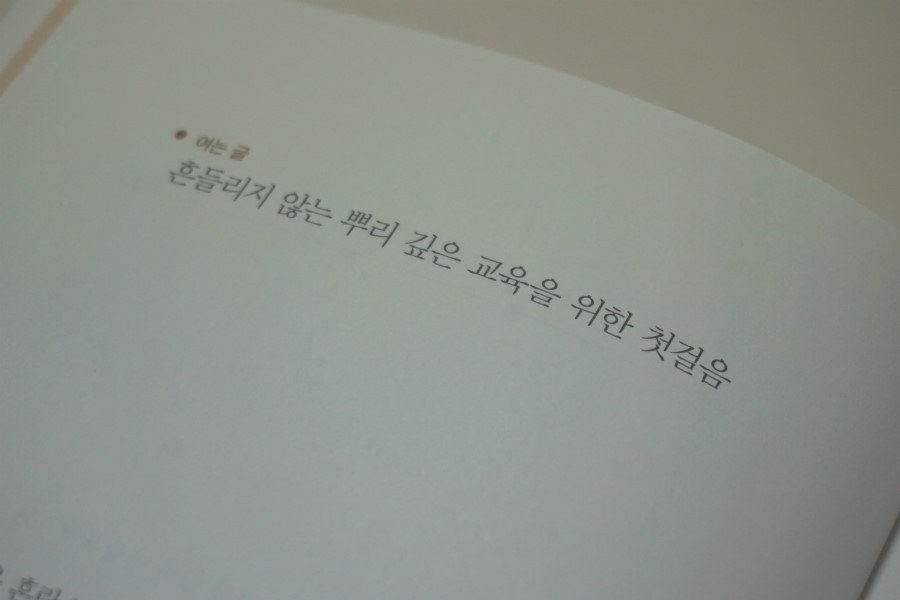 여는 글
흔들리지 않는 뿌리 깊은 교육을 위한 첫걸음